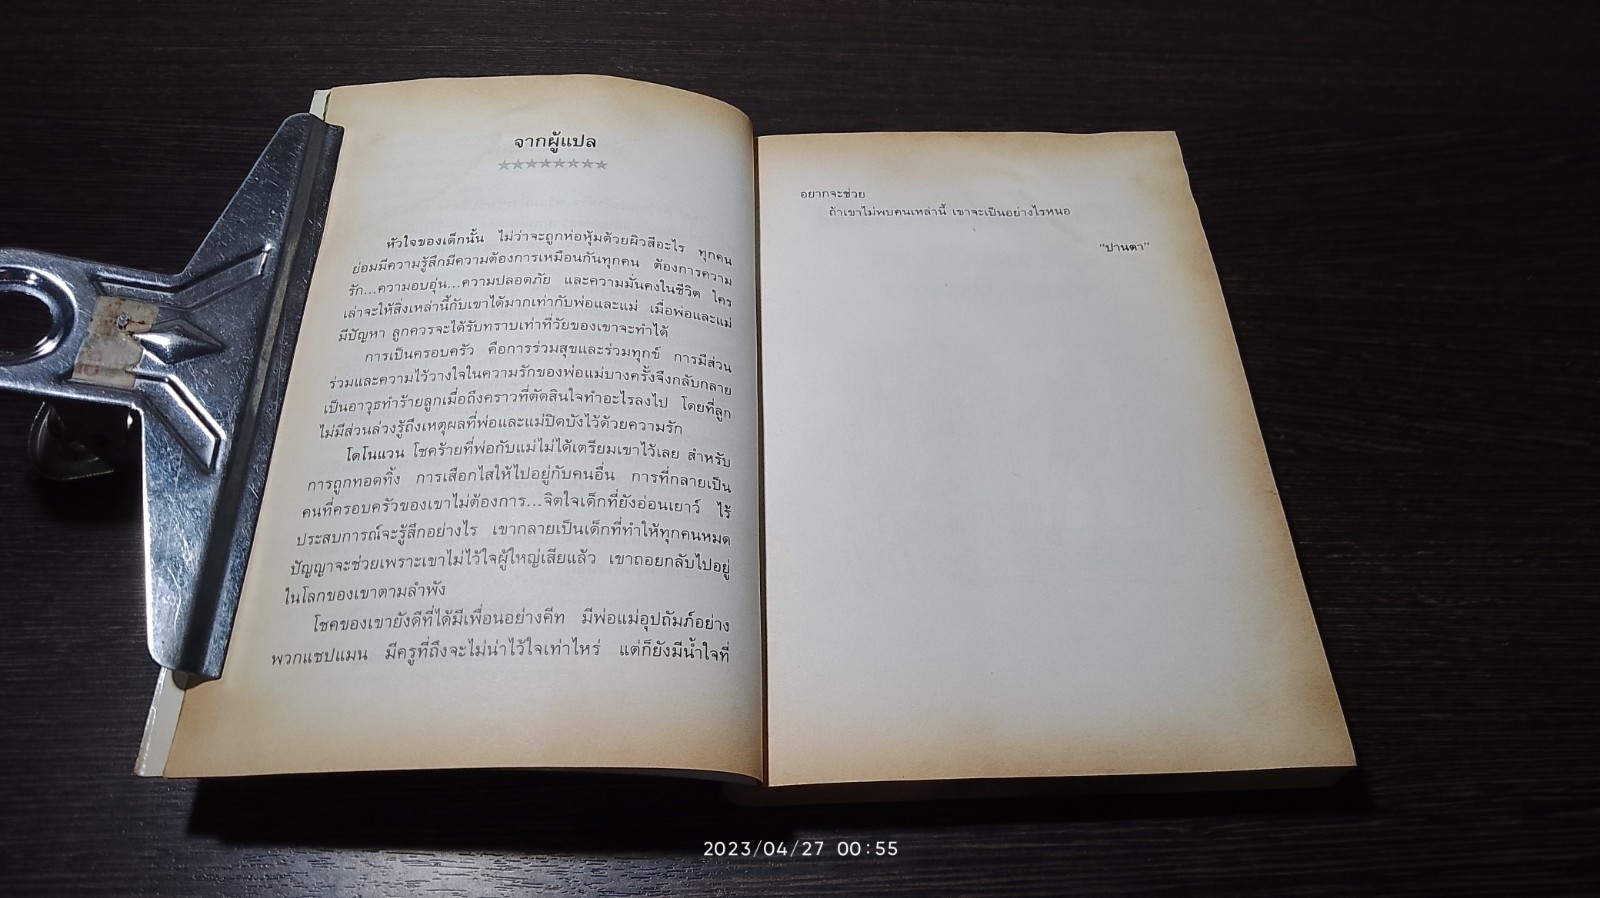 จากผู้แปล
★★★★★★★★
หัวใจของเด็กนั้น ไม่ว่าจะถูกห่อหุ้มด้วยผิวสีอะไร ทุกคน
ย่อมมีความรู้สึกมีความต้องการเหมือนกันทุกคน ต้องการความ
รัก...ความอบอุ่น...ความปลอดภัย และความมั่นคงในชีวิต ใคร
เล่าจะให้สิ่งเหล่านี้กับเขาได้มากเท่ากับพ่อและแม่ เมื่อพ่อและแม่
มีปัญหา ลูกควรจะได้รับทราบเท่าที่วัยของเขาจะทำได้
การเป็นครอบครัว คือการร่วมสุขและร่วมทุกข์ การมีส่วน
ร่วมและความไว้วางใจในความรักของพ่อแม่บางครั้งจึงกลับกลาย
เป็นอาวุธทำร้ายลูกเมื่อถึงคราวที่ตัดสินใจทำอะไรลงไป โดยที่ลูก
ไม่มีส่วนล่วงรู้ถึงเหตุผลที่พ่อและแม่ปิดบังไว้ด้วยความรัก
โดโนแวน โชคร้ายที่พ่อกับแม่ไม่ได้เตรียมเขาไว้เลย สำหรับ
การถูกทอดทิ้ง การเสือกไสให้ไปอยู่กับคนอื่น การที่กลายเป็น
คนที่ครอบครัวของเขาไม่ต้องการ...จิตใจเด็กที่ยังอ่อนเยาว์ ไร้
ประสบการณ์จะรู้สึกอย่างไร เขากลายเป็นเด็กที่ทำให้ทุกคนหมด
ปัญญาจะช่วยเพราะเขาไม่ไว้ใจผู้ใหญ่เสียแล้ว เขาถอยกลับไปอยู่
ในโลกของเขาตามลำพัง
โชคของเขายังดีที่ได้มีเพื่อนอย่างคีท มีพ่อแม่อุปถัมภ์อย่าง
พวกแชปแมน มีครูที่ถึงจะไม่น่าไว้ใจเท่าไหร่ แต่ก็ยังมีน้ำใจที่
อยากจะช่วย
ถ้าเขาไม่พบคนเหล่านี้ เขาจะเป็นอย่างไรหนอ
“ปานตา”
2023/04/27 00:55